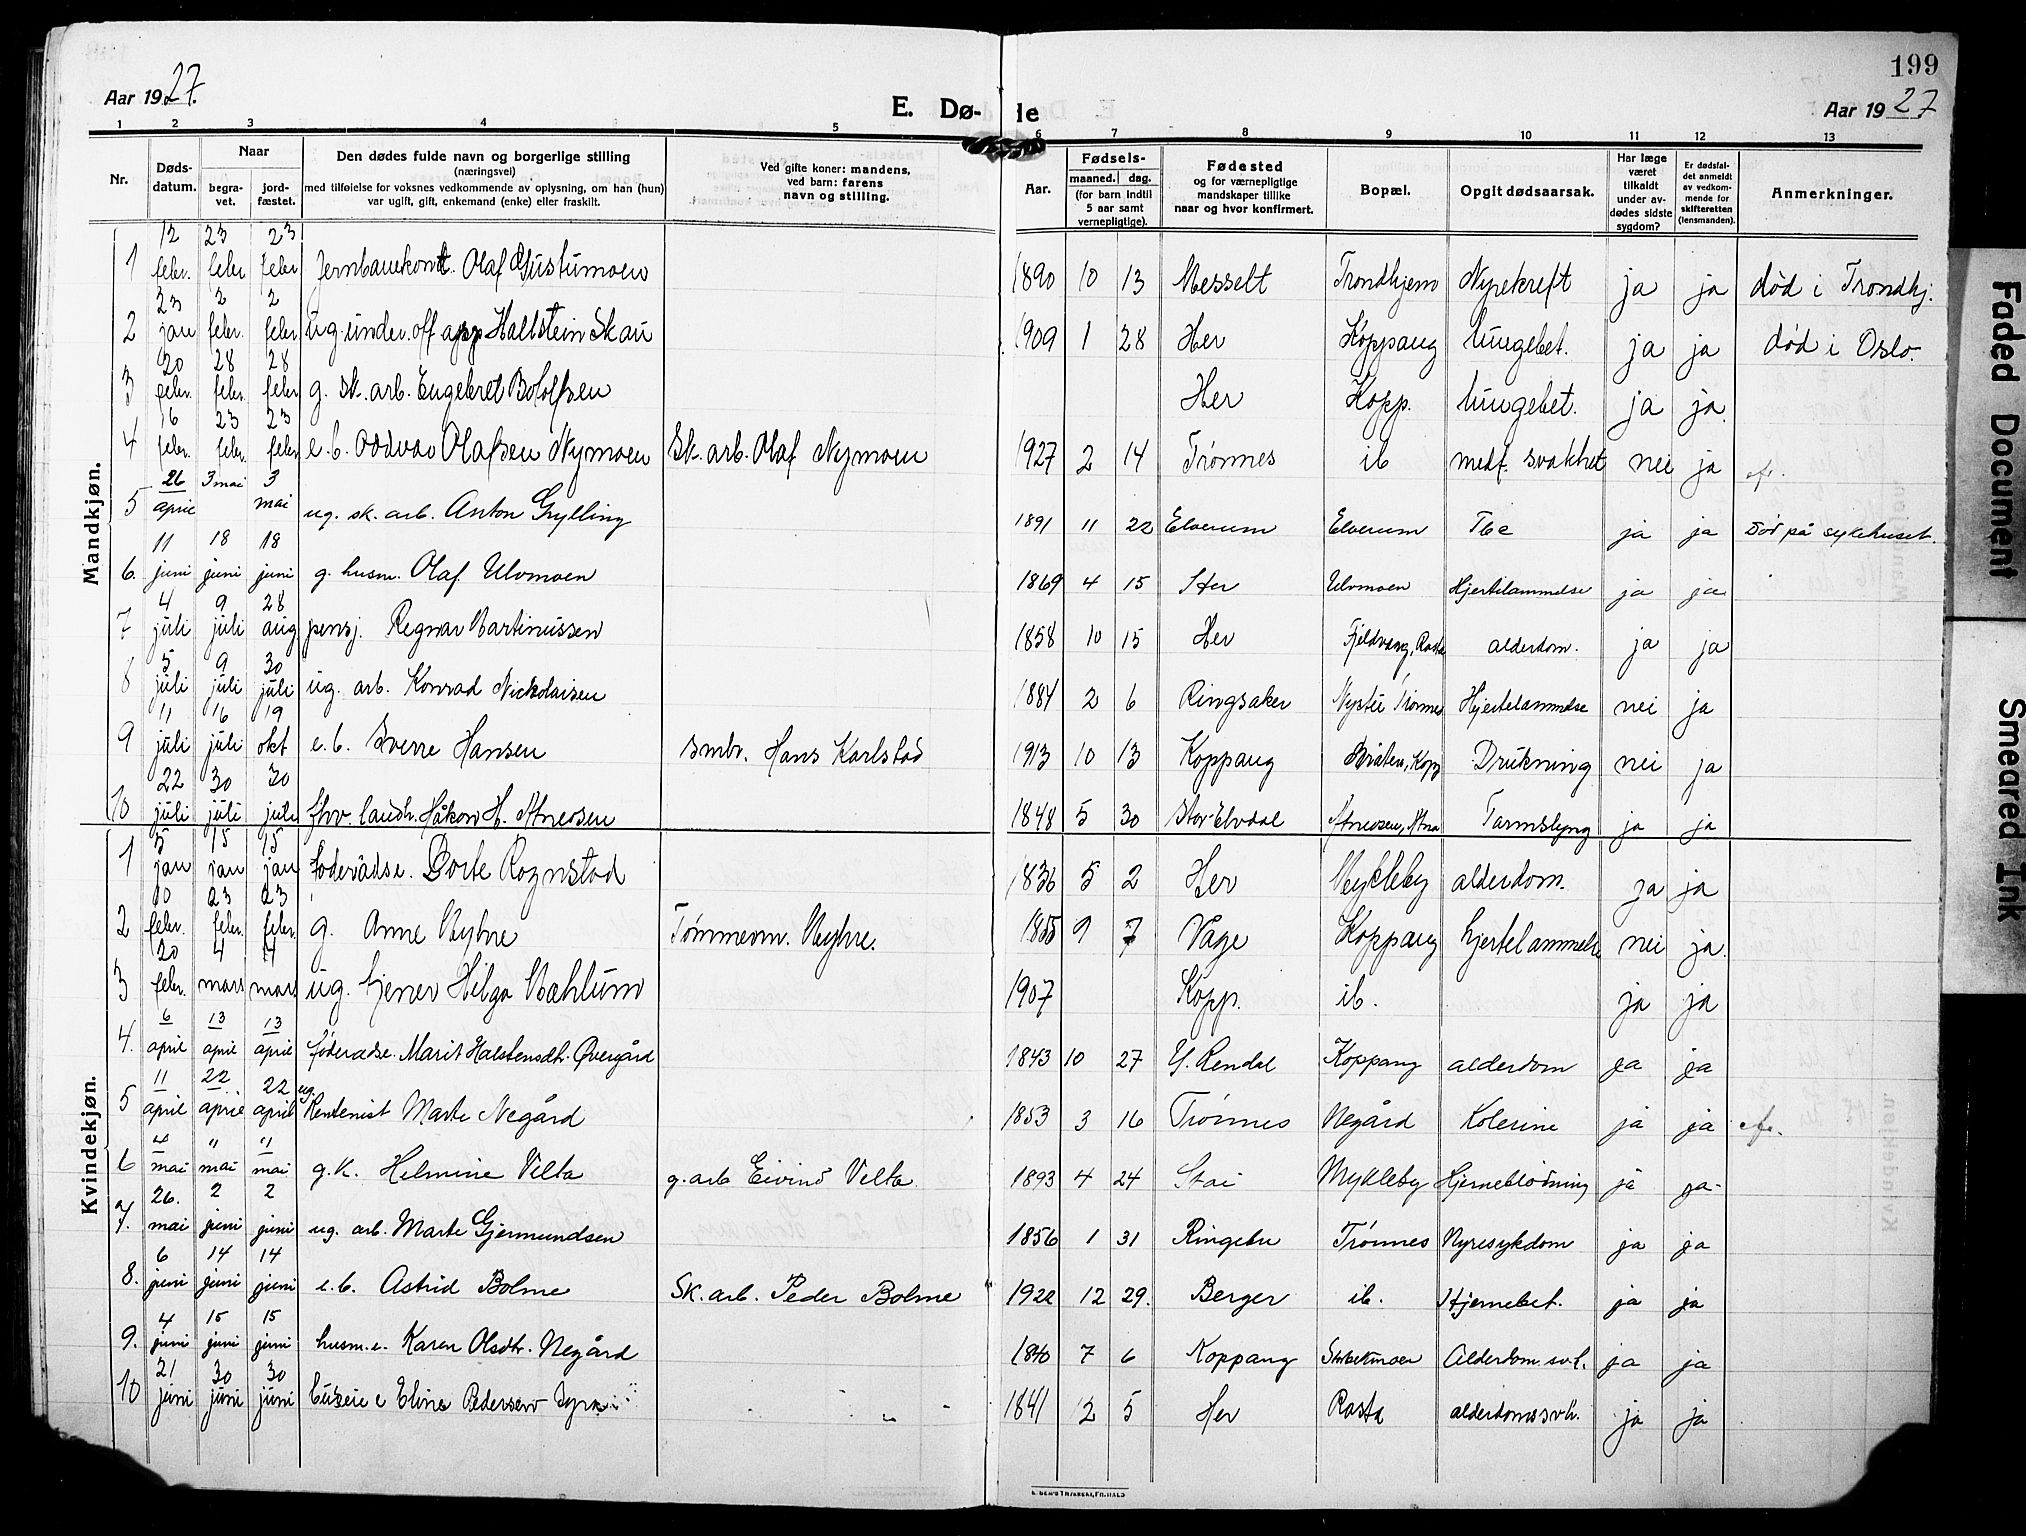 199
Aar 1927.
E. Dø-de
Aar 1927
1 2 3 4 5 6 7 8 9 10 11 12 13
Nr.
Døds-datum.
Naar
begra-vet.
jord-fæstet.
Den dødes fulde navn og borgerlige stilling
(næringsvei)
med tilføielse for voksnes vedkommende av oplysning, om han (hun)
var ugift, gift, enkemand (enke) eller fraskilt.
Ved gifte koner: mandens,
ved barn: farens
navn og stilling.
Aar.
Fødsels-
maaned. dag.
(for barn indtil
5 aar samt
vernepligtige).
Fødested
og for værnepligtige
mandskaper tillike
naar og hvor konfirmert.
Bopæl.
Opgit dødsaarsak.
Har læge
været
tilkaldt
under av-
dødes sidste
sygdom?
Er dødsfal-
det anmeldt
av vedkom-
mende for
skifteretten
(lensmanden).
Anmerkninger.
Mandkjøn.
1 12 febr. 23 febr 23 febr Jernbanekont. Olaf Gustumoen 1890 10 13 Messelt Trondhjem Nyrekreft ja ja død i Trondhj.
2 23 jan 2 febr. 2 febr. ug. under.off app Hallstein Skau 1909 1 28 Her Koppang lungebet. ja ja død i Oslo.
3 20 febr. 28 febr. 28 febr g. sk. arb. Engebret Her Kopp. lungebet. ja ja.
4 16 febr. 23 febr. 23 febr e. b. Oddvar Olafsen Nymoen Sk. arb. Olaf Nymoen 1927 2 14 Trønnes ib medf. svakhet nei ja
5 26 april 3 mai 3 mai ug. sk. arb. Anton Grylling 1891 11 22 Elverum Elverum Tbc ja ja Død på sykehuset.
6. 11 juni 18 juni 18 juni g. husm. Olaf Ulvmoen 1869 4 15 Her Ulvmoen Hjertelammelse ja ja
7 4 juli 9 juli 28 aug pensj. Regnar Martinussen 1858 10 15 Her Fjeldvang, Rasta alderdom. ja ja
8 5 juli 9 juli 30 juli ug. arb. Konrad Nickolaisen 1884 2 6 Ringsaker Nystu Trønnes Hjertelammelse nei ja
9 11 juli 16 juli 19 okt e. b. Sverre Hansen smbr. Hans Karlstad 1913 10 13 Koppang Bråten, Kopp Drukning nei ja
10 22 juli 30 juli 30 juli fhv. landh. Håkon H. Atneosen 1848 5 30 Stor-Elvdal Atneosen, Atna Tarmslyng ja ja
Kvindekjøn.
1 5 jan 15 jan 15 jan føderådse. Dorte Rognstad 1836 5 2 Her Mykleby alderdom. ja ja
2 10 febr. 23 febr. 23 febr. g. Anne Myhre Tømmerm. Myhre. 1855 9 7 Våge Koppang hjertelammelse nei ja.
3 20 febr. 4 mars 4 mars ug. tjener Helga Mæhlum 1907 Kopp. ib. ja ja
4. 6 april 13 april 13 april føderådse. Marit Halstensdtr. Øvergård 1843 10 27 Y. Rendal Koppang alderdom ja ja
5 11 april 22 april 22 april ug. Rentenist Marte Negård 1853 3 16 Trønnes Negård Kolerine ja ja
6 4 mai 11 mai 11 mai g. k. Helmine Velta g. arb Eivind Velta 1893 4 24 Stai Mykleby Hjerneblødning ja ja
7. 26. mai 2 juni 2 juni ug. arb. Marte Gjermundsen 1856 1 31 Ringebu Trønnes Nyresykdom ja ja
8. 6 juni 14 juni 14 juni e. b. Astrid Bolme Sk. arb. Peder Bolme 1922 12 29. Berger ib. Hjernebet. ja ja
9. 4 juni 15 juni 15 juni husm. e. Karen Olsdtr. Negård 1840 7 6 Koppang Alderdom sv.h. ja ja
10 21 juni 30 juni 30 juni Eline Pedersen 1841 2 5 Her Rasta alderdomssvh. ja ja
Faded Document
Smeared Ink